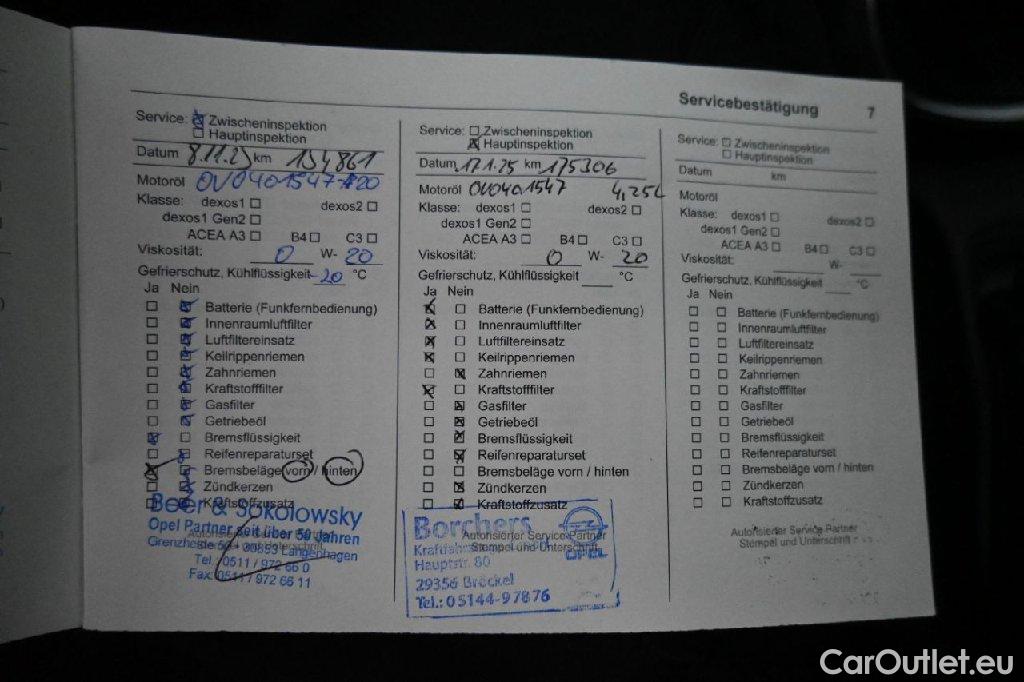 Servicebestätigung 7
Service: Zwischeninspektion
Hauptinspektion
Datum 8.11.23 km 134861
Motoröl OV0401547 A20
Klasse: dexos1 dexos2
dexos1 Gen2
ACEA A3 B4 C3
Viskosität: 0 W- 20
Gefrierschutz, Kühlflüssigkeit -20 °C
Ja Nein
Batterie (Funkfernbedienung)
Innenraumluftfilter
Luftfiltereinsatz
Keilrippenriemen
Zahnriemen
Kraftstofffilter
Gasfilter
Getriebeöl
Bremsflüssigkeit
Reifenreparaturset
Bremsbeläge vorn / hinten
Zündkerzen
Kraftstoffzusatz
Beer & Sokolowsky
Opel Partner seit über 50 Jahren
Langenhagen
Tel. 0511 / 972 66 0
Fax 0511 / 972 66 11
Service: Zwischeninspektion
Hauptinspektion
Datum 17.1.25 km 175306
Motoröl OV0401547 4,25L
Klasse: dexos1 dexos2
dexos1 Gen2
ACEA A3 B4 C3
Viskosität: 0 W- 20
Gefrierschutz, Kühlflüssigkeit °C
Ja Nein
Batterie (Funkfernbedienung)
Innenraumluftfilter
Luftfiltereinsatz
Keilrippenriemen
Zahnriemen
Kraftstofffilter
Gasfilter
Getriebeöl
Bremsflüssigkeit
Reifenreparaturset
Bremsbeläge vorn / hinten
Zündkerzen
Kraftstoffzusatz
Autorisierter Service Partner
Stempel und Unterschrift
Borchers
OPEL
Hauptstr. 80
29356 Bröckel
Tel.: 05144-97876
Service: Zwischeninspektion
Hauptinspektion
Datum km
Motoröl
Klasse: dexos1 dexos2
dexos1 Gen2
ACEA A3 B4 C3
Viskosität: W-
Gefrierschutz, Kühlflüssigkeit °C
Ja Nein
Batterie (Funkfernbedienung)
Innenraumluftfilter
Luftfiltereinsatz
Keilrippenriemen
Zahnriemen
Kraftstofffilter
Gasfilter
Getriebeöl
Bremsflüssigkeit
Reifenreparaturset
Bremsbeläge vorn / hinten
Zündkerzen
Kraftstoffzusatz
Autorisierter Service Partner
Stempel und Unterschrift
CarOutlet.eu